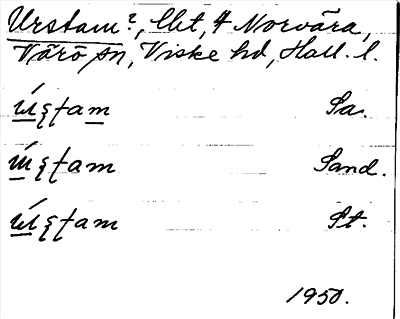 Urstam?, lht, 4 Norvära,
Värö sn, Viske hd, Hall. l.
ú̲ʂʈam Sa.
ú̲ʂʈam Sand.
ú̲ʂʈam St.
1950.